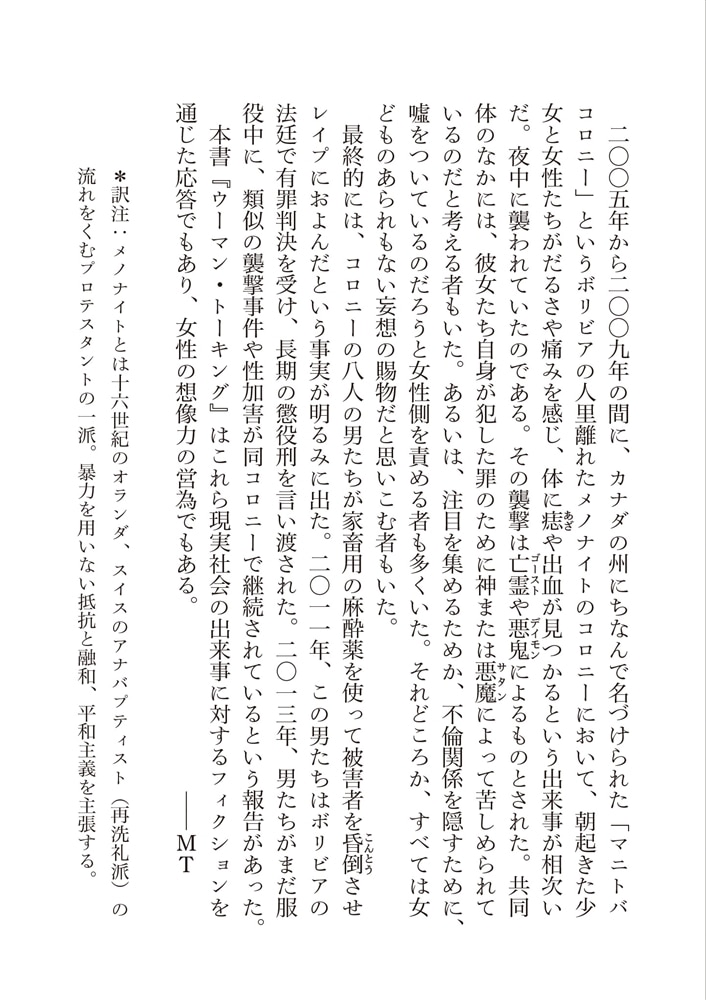 二〇〇五年から二〇〇九年の間に、カナダの州にちなんで名づけられた「マニトバ
コロニー」というボリビアの人里離れたメノナイトのコロニーにおいて、朝起きた少
女と女性たちがだるさや痛みを感じ、体に痣や出血が見つかるという出来事が相次い
だ。夜中に襲われていたのである。その襲撃は亡霊や悪鬼によるものとされた。共同
体のなかには、彼女たち自身が犯した罪のために神または悪魔によって苦しめられて
いるのだと考える者もいた。あるいは、注目を集めるためか、不倫関係を隠すために、
嘘をついているのだろうと女性側を責める者も多くいた。それどころか、すべては女
どものあられもない妄想の賜物だと思いこむ者もいた。
最終的には、コロニーの八人の男たちが家畜用の麻酔薬を使って被害者を昏倒させ
レイプにおよんだという事実が明るみに出た。二〇一一年、この男たちはボリビアの
法廷で有罪判決を受け、長期の懲役刑を言い渡された。二〇一三年、男たちがまだ服
役中に、類似の襲撃事件や性加害が同コロニーで継続されているという報告があった。
本書『ウーマン・トーキング』はこれら現実社会の出来事に対するフィクションを
通じた応答でもあり、女性の想像力の営為でもある。
――MT
＊訳注：メノナイトとは十六世紀のオランダ、スイスのアナバプティスト（再洗礼派）の
流れをくむプロテスタントの一派。暴力を用いない抵抗と融和、平和主義を主張する。